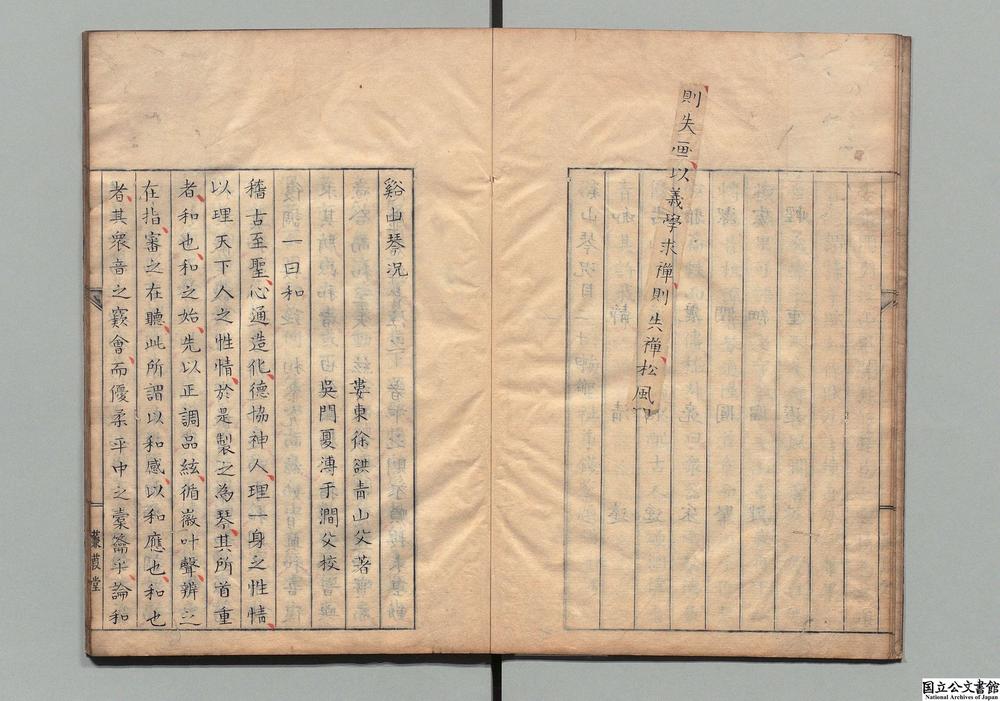 則失画以義學求禅則失禅松風
谿山琴況
婁東徐谼青山父著
吳門夏溥于澗父校
一曰和
稽古至聖心通造化德協神人理一身之性情
以理天下人之性情於是製之為琴其所首重
者和也和之始先以正調品絃循徽叶聲辨之
在指審之在聽此所謂以和感以和應也和也
者其衆音之窾會而優柔平中之橐籥乎論和
叢堂
国立公文書館
National Archives of Japan